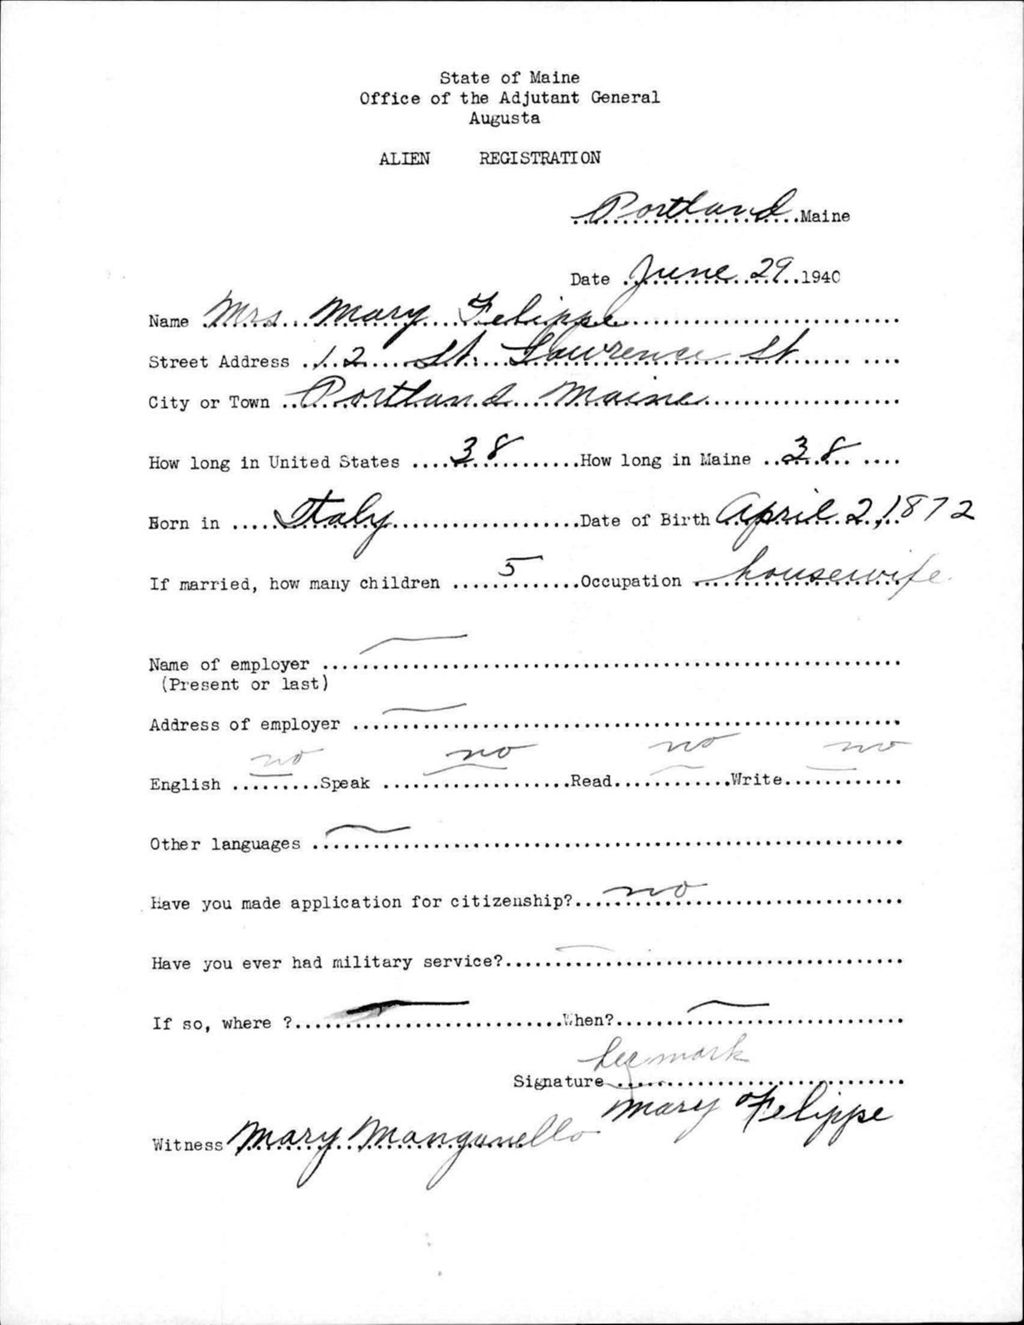 State of Maine
Office of the Adjutant General
Augusta
ALIEN REGISTRATION
Portland Maine
Date June 29 1940
Name Mrs Mary Felippe
Street Address 12 St. Lawrence St
City or Town Portland Maine
How long in United States 38 How long in Maine 38
Born in Italy Date of Birth April 2, 1872
If married, how many children 5 Occupation housewife
Name of employer
(Present or last)
Address of employer
no no no no
English Speak Read Write
Other languages
Have you made application for citizenship? no
Have you ever had military service?
If so, where ? When?
her mark
Signature
Mary Felippe
Witness Mary Manganello